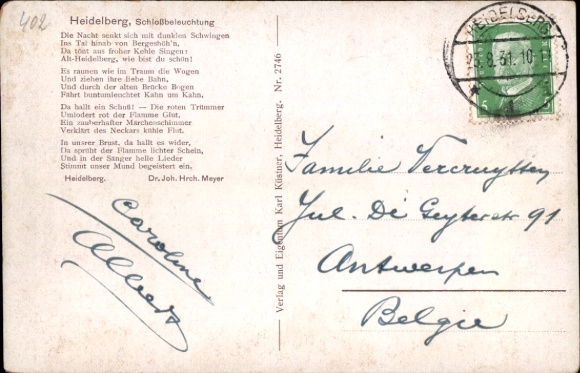 402
Heidelberg, Schloßbeleuchtung
Die Nacht senkt sich mit dunklen Schwingen
Ins Tal hinab von Bergeshöh'n,
Da tönt aus froher Kehle Singen:
Alt-Heidelberg, wie bist du schön!
Es raunen wie im Traum die Wogen
Und ziehen ihre Bebe Bahn,
Und durch der alten Brücke Bogen
Fährt buntumleuchtet Kahn um Kahn,
Da hallt ein Schuß! — Die roten Trümmer
Umlodert rot der Flamme Glut,
Ein zauberhafter Märchenschimmer
Verklärt des Neckars kühle Flut.
In unsrer Brust, da hallt es wider,
Da sprüht der Flamme lichter Schein,
Und in der Sänger helle Lieder
Stimmt unser Mund begeistert ein.
Heidelberg. Dr. Joh. Hrch. Meyer
Caroline
Albert
Verlag und Eigentum Karl Küstner, Heidelberg. Nr. 2746
HEIDELBERG
8.31.10
5 5
Familie Vercruyssen
Jul. De Geyterstr 91
Antwerpen
Belgie